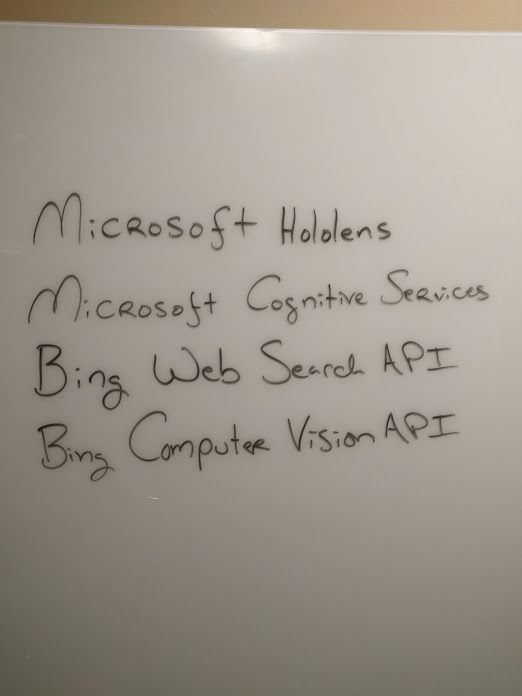 Microsoft Hololens
Microsoft Cognitive Services
Bing Web Search API
Bing Computer Vision API